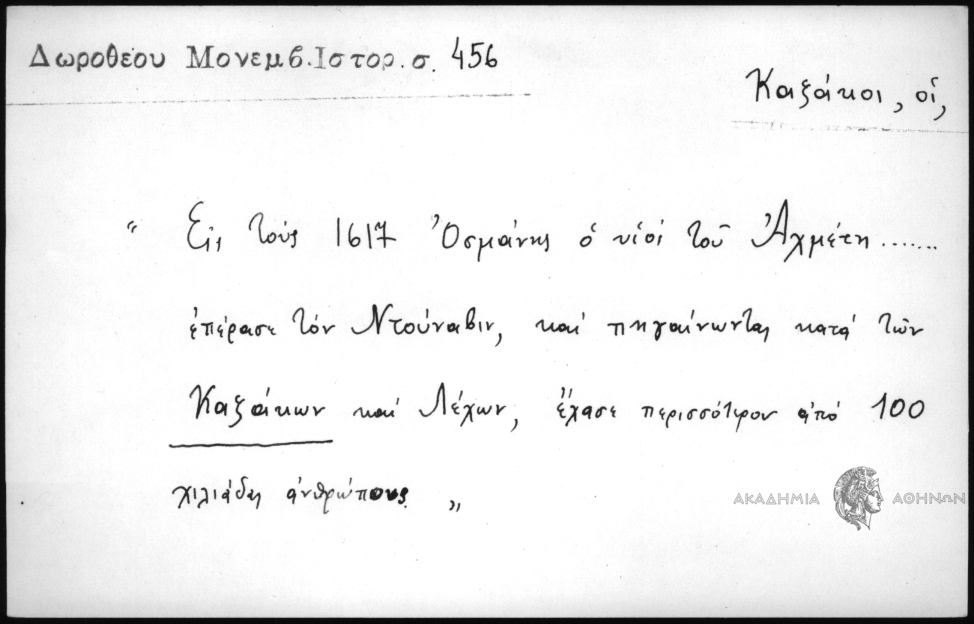 Δωροθέου Μονεμβ. Ιστορ. σ. 456
Καζάκοι, οἱ,
“ Εἰς τοὺς 1617 Ὀσμάνης ὁ υἱὸς τοῦ Ἀχμέτη.......
ἐπέρασε τὸν Ντούναβιν, καὶ πηγαίνωντας κατὰ τῶν
Καζάκων καὶ Λέχων, ἔχασε περισσότερον ἀπὸ 100
χιλιάδες ἀνθρώπους „
ΑΚΑΔΗΜΙΑ ΑΘΗΝΩΝ